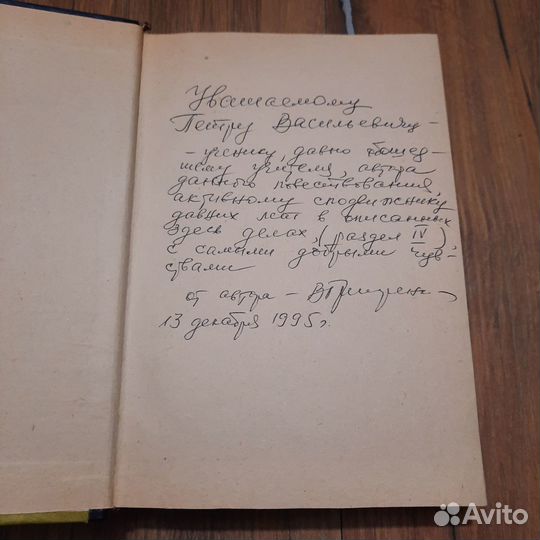 Уважаемому
Петру Васильевичу -
- ученику, давно бывше-
му учителя, автора
данного повествования,
активному сподвижнику
давних лет в описанных
здесь делах, (раздел IV),
с самыми добрыми чув-
ствами
от автора -
13 декабря 1995 г.
Avito